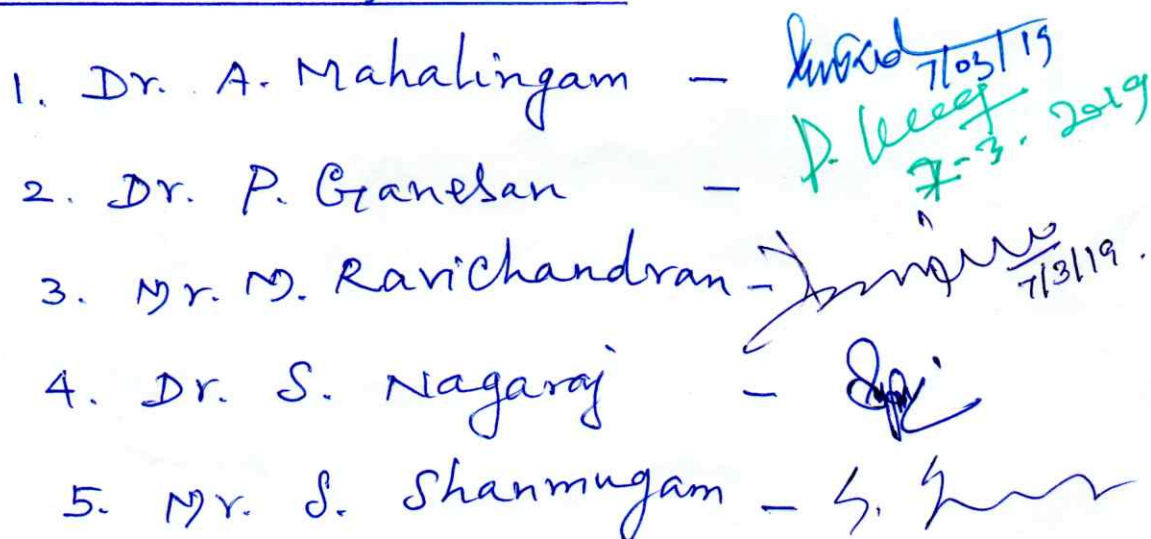 1. Dr. A. Mahalingam - 7/03/19
2. Dr. P. Ganesan - P. 7-3-2019
3. Mr. M. Ravichandran - 7/3/19.
4. Dr. S. Nagaraj -
5. Mr. S. Shanmugam - S.